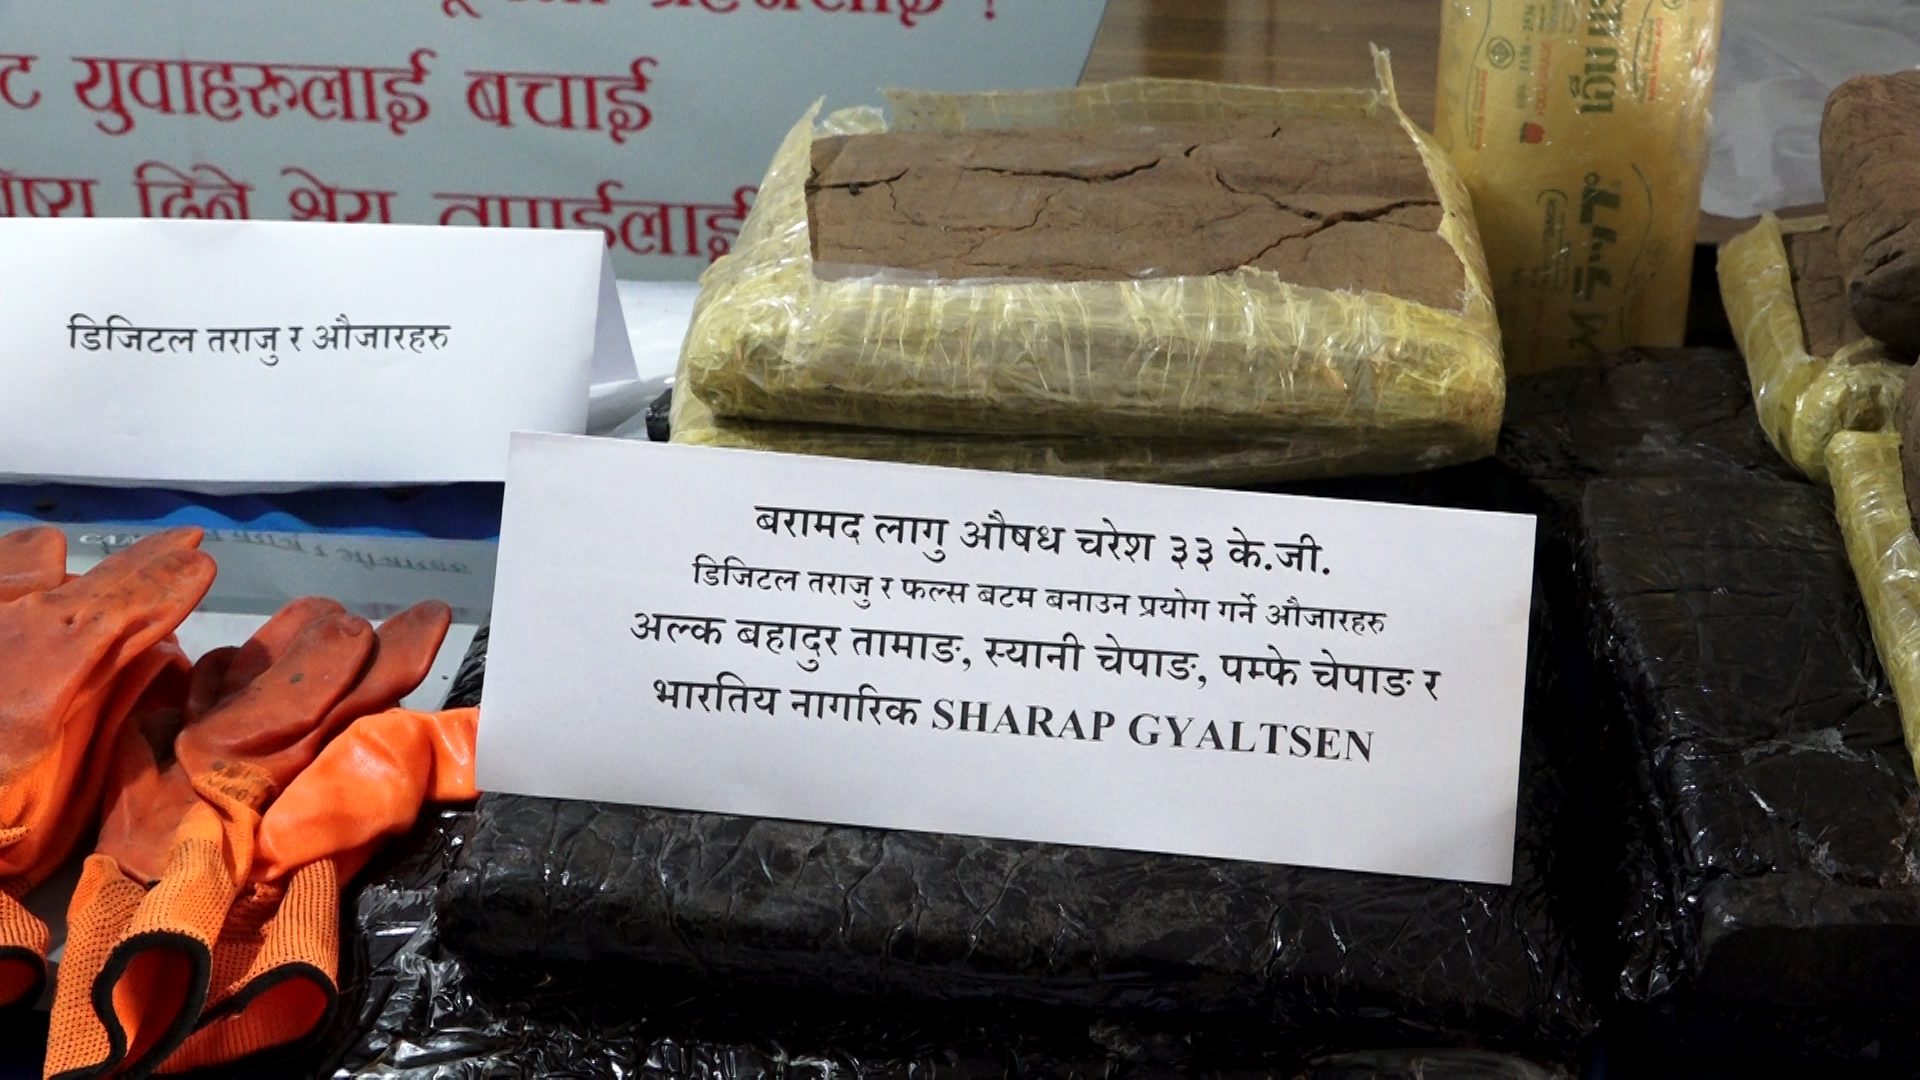 युवाहरुलाई बचाई
दिने श्रेय तपाईलाई
डिजिटल तराजु र औजारहरु
बरामद लागु औषध चरेश ३३ के.जी.
डिजिटल तराजु र फल्स बटम बनाउन प्रयोग गर्ने औजारहरु
अल्क बहादुर तामाङ, स्यानी चेपाङ, पम्फे चेपाङ र
भारतिय नागरिक SHARAP GYALTSEN